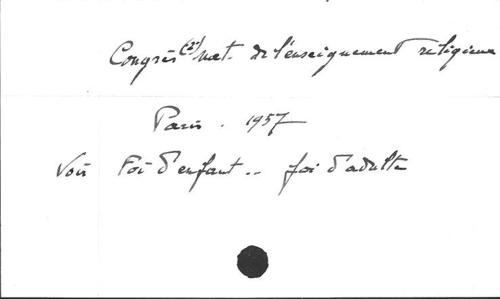 Congrès (2e) nat. de l'enseignement religieux
Paris. 1957
Voir Foi d'enfant.. foi d'adulte